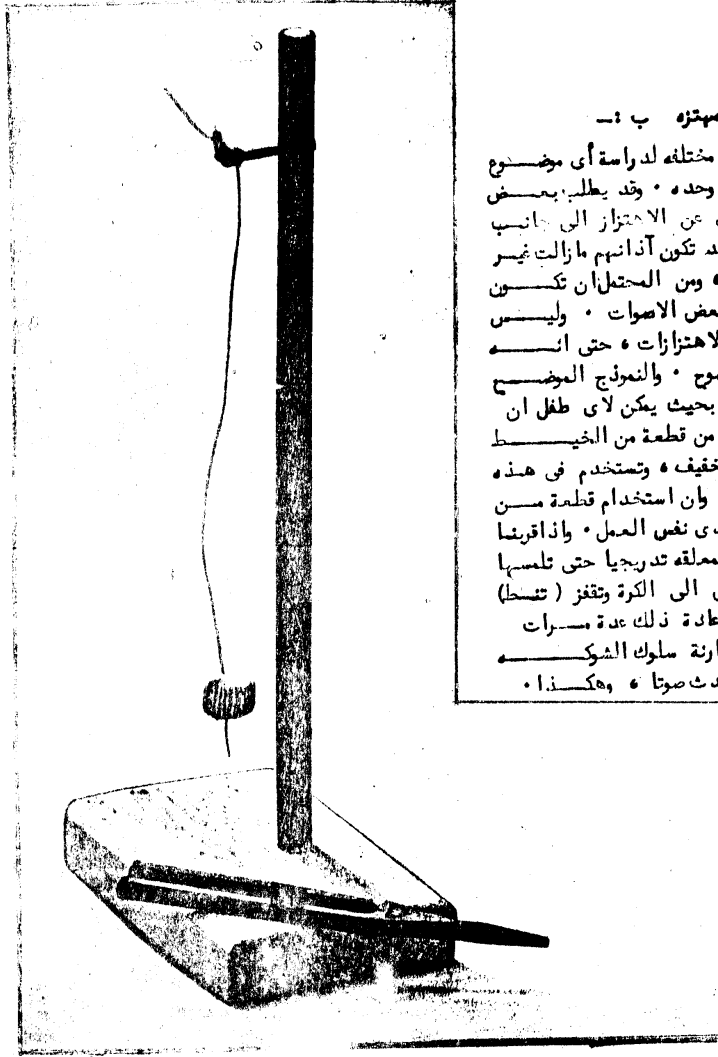 مهتزه ب :-
مختلفه لدراسة أى موضـــوع
وحده ٠ وقد يطلب بعـــض
عن الاهتزاز الى جانـــب
تكون آذانهم مازالت غيـــر
ومن المحتمل ان تكـــون
الاصوات ٠ وليـــس
الاهتزازات ، حتى انـــه
والنموذج الموضـــح
بحيث يمكن لاى طفل ان
من قطعة من الخيـــط
خفيف ، وتستخدم فى هذه
وان استخدام قطعة مـــن
نفس العمل ٠ واذا قربنـا
معلقه تدريجيا حتى تلمسها
الى الكرة وتقفز ( تنـط)
ذلك عدة مـــرات
سلوك الشوكـــه
صوتا ، وهكـــذا ٠